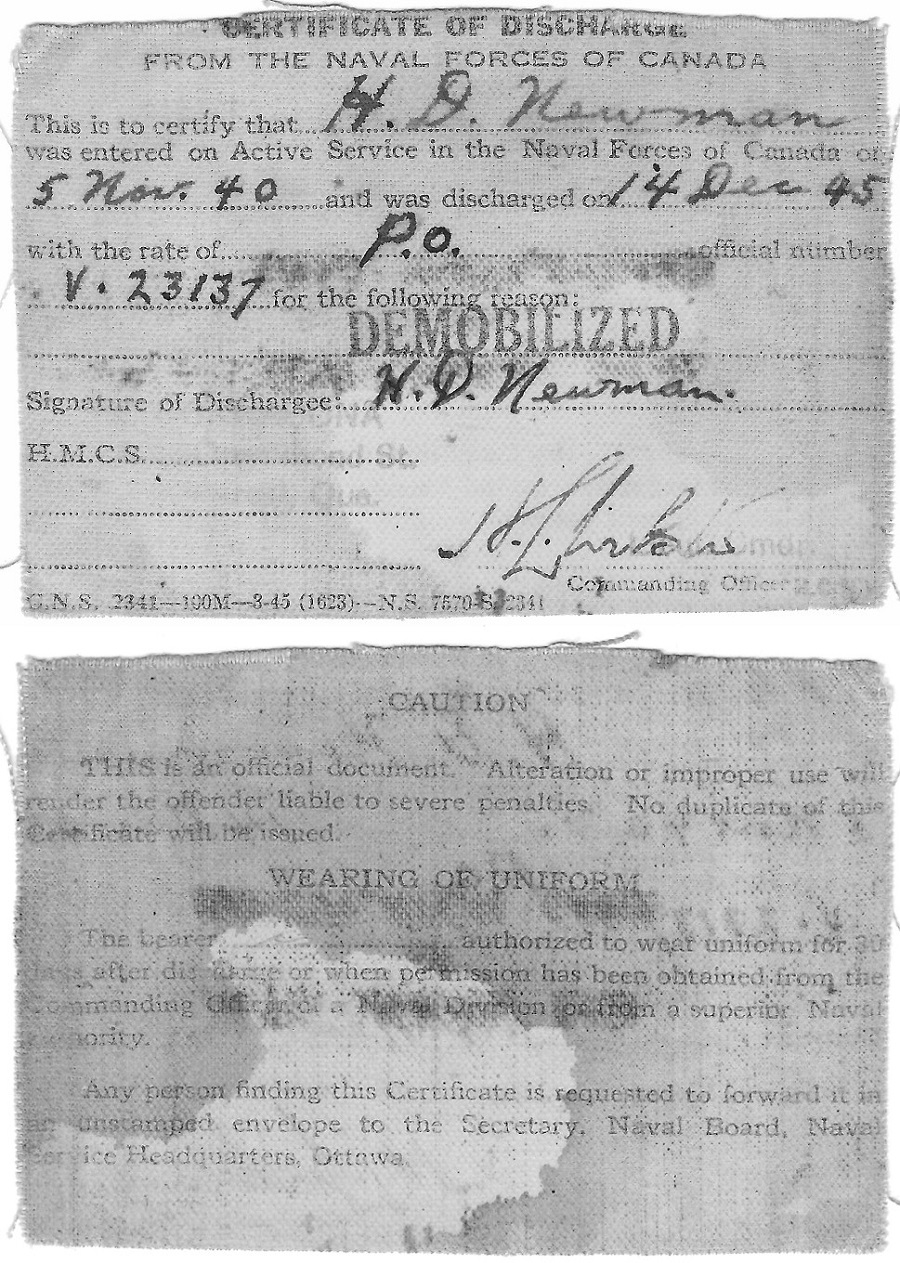 CERTIFICATE OF DISCHARGE
FROM THE NAVAL FORCES OF CANADA
This is to certify that H. D. Newman
was entered on Active Service in the Naval Forces of Canada on
5 Nov. 40 and was discharged on 14 Dec 45
with the rate of P.O. official number
V. 23137 for the following reason:
DEMOBILIZED
Signature of Dischargee: H. D. Newman.
H.M.C.S.
St.
Que.
Commanding Officer
C.N.S. 2341—100M—3-45 (1623)—N.S. 7570-S. 2341
CAUTION
THIS is an official document. Alteration or improper use will
render the offender liable to severe penalties. No duplicate of this
Certificate will be issued.
WEARING OF UNIFORM
The bearer authorized to wear uniform for 30
days after discharge or when permission has been obtained from the
Commanding Officer of a Naval Division or from a superior Naval
authority.
Any person finding this Certificate is requested to forward it in
an unstamped envelope to the Secretary, Naval Board, Naval
Service Headquarters, Ottawa.